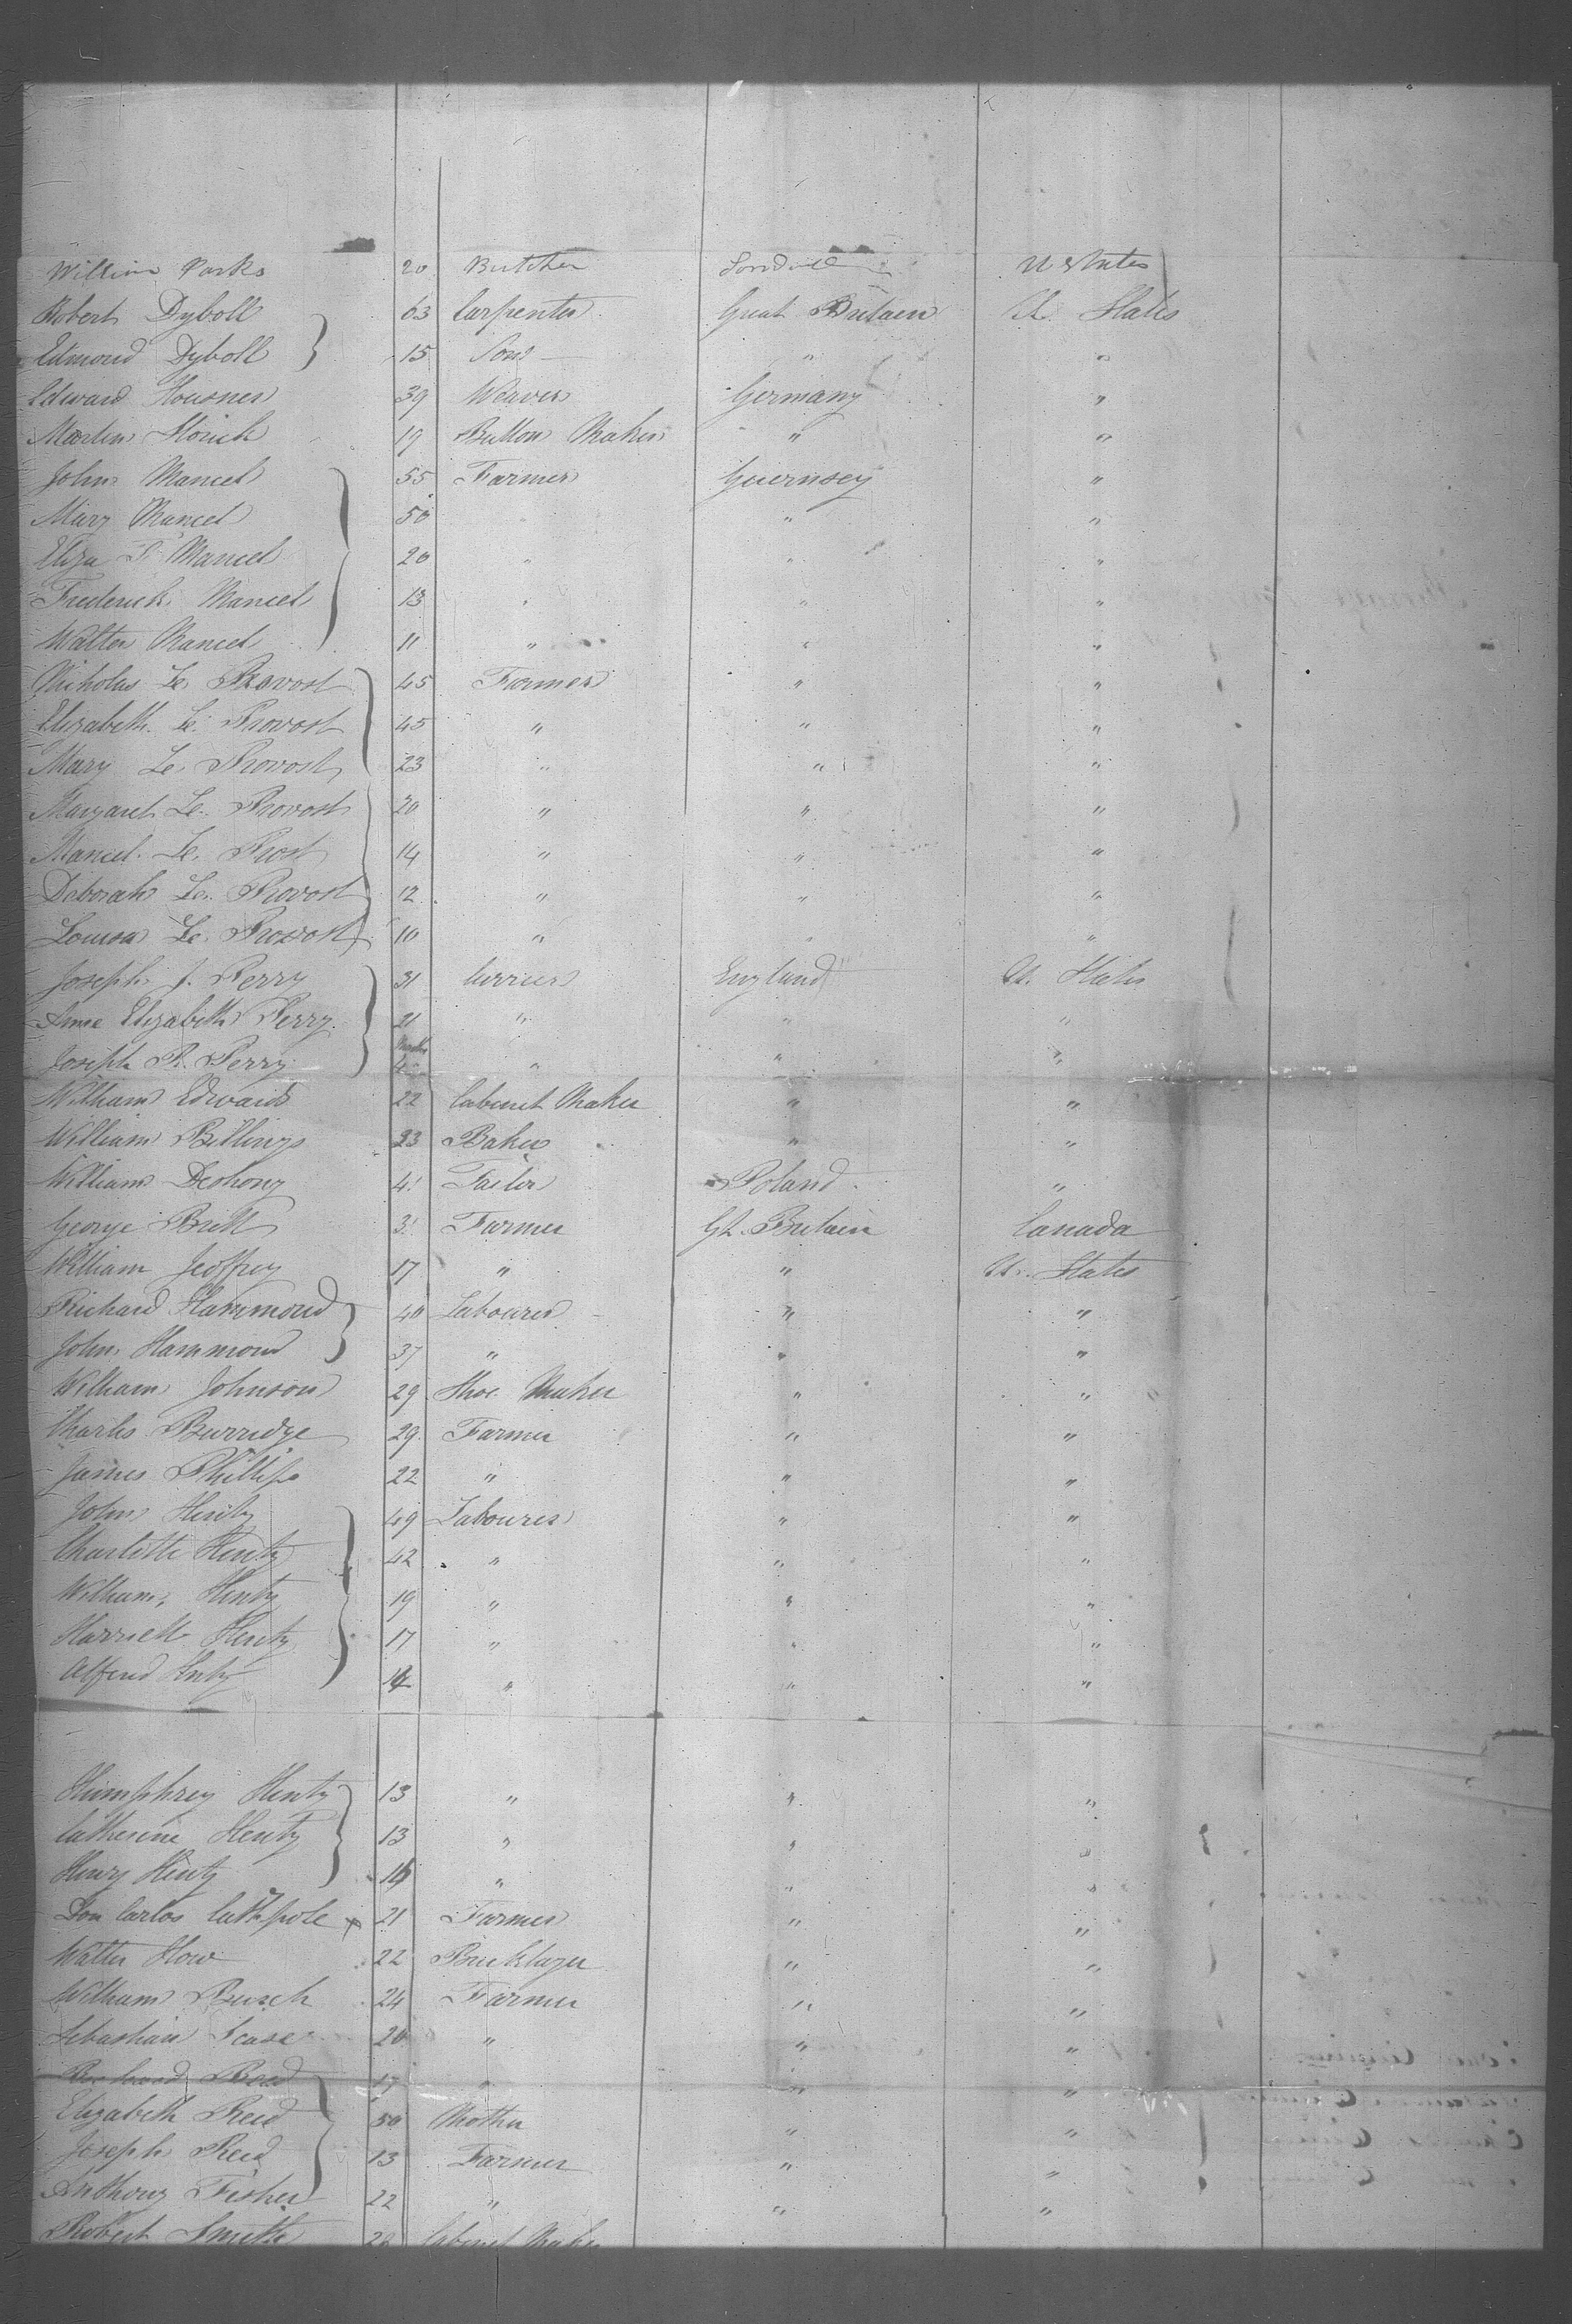 William Parks 20 Butcher U States
Robert Dyboll 63 Carpenter Great Britain U. States
Edmond Dyboll 15 Son " "
Edward Housner 39 Weaver Germany "
Martin 19 Button Maker " "
John Mancel 55 Farmer Guernsey "
Mary Mancel 50 " " "
Eliza S Mancel 20 " " "
Frederick Mancel 13 " " "
Walter Mancel 11 " " "
Nicholas Le Provost 45 Farmer " "
Elizabeth Le Provost 45 " " "
Mary Le Provost 23 " " "
Margaret Le Provost 20 " " "
Mancel Le Prost 14 " " "
Deborah Le Provost 12 " " "
Louisa Le Provost 10 " " "
Joseph J. Perry 31 Currier England U. States
Anne Elizabeth Perry 21 " " "
Joseph P. Perry " " "
William Edwards 22 Cabinet Maker " "
William Billings 23 Baker " "
William 41 Tailor Poland "
George Britt 31 Farmer Gt. Britain Canada
William Jeoffrey 17 " " U. States
Richard Hammond 40 Labourer " "
John Hammond 37 " " "
William Johnson 29 Shoe Maker " "
Charles Burridge 29 Farmer " "
James Phillips 22 " " "
John Henty 49 Labourer " "
Charlotte Henty 42 " " "
William Henty 19 " " "
Harriett Henty 17 " " "
Alfred Henty 14 " " "
Humphrey Henty 13 " " "
Catherine Henty 13 " " "
Henry Henty " " "
Don Carlos Cathpole 21 Farmer " "
Walter How 22 Bricklayer " "
William Burch 24 Farmer " "
Sebastian Scase 20 " " "
Reed 17 " " "
Elizabeth Reed 50 Mother " "
Joseph Reed 13 Farmer " "
Anthony Fisher 22 " " "
Robert Smith Cabinet Maker